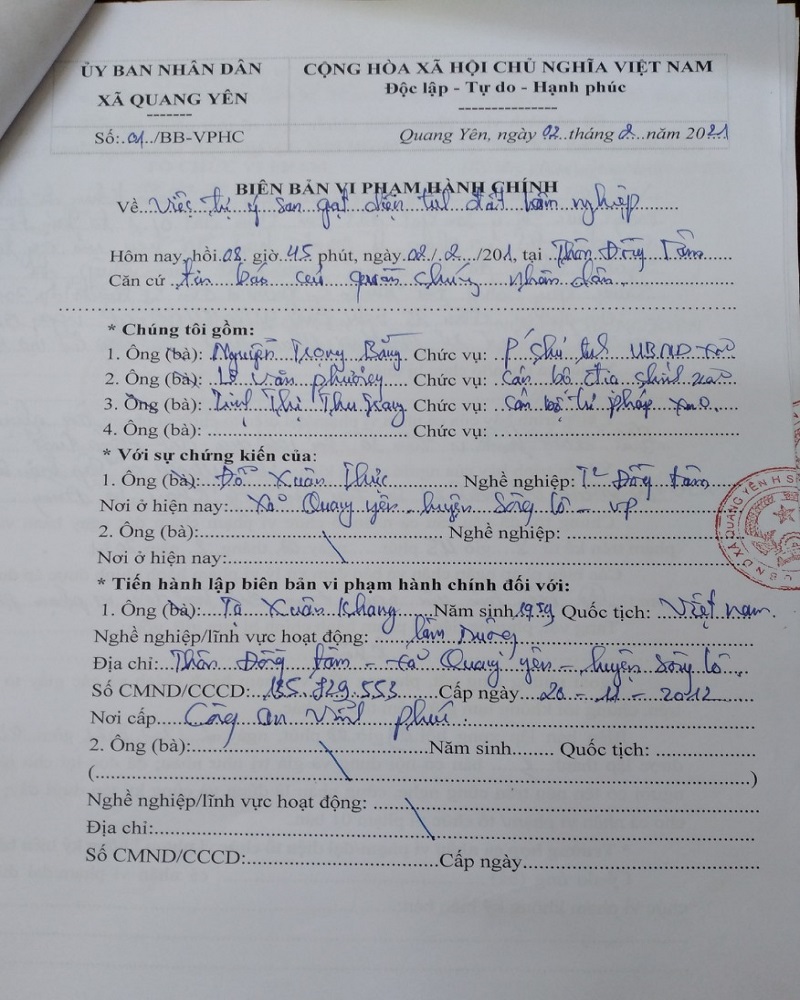 ỦY BAN NHÂN DÂN
XÃ QUANG YÊN
-------
Số:.01../BB-VPHC
CỘNG HÒA XÃ HỘI CHỦ NGHĨA VIỆT NAM
Độc lập - Tự do - Hạnh phúc
---------------
Quang Yên, ngày 02..tháng 2..năm 2021
BIÊN BẢN VI PHẠM HÀNH CHÍNH
Về Việc tự ý san gạt diện tích đất lâm nghiệp
Hôm nay, hồi 08. giờ 45 phút, ngày 02/.2../201, tại Thôn Đồng Tâm
Căn cứ tin báo của quần chúng nhân dân
* Chúng tôi gồm:
1. Ông (bà): Nguyễn Trọng Bằng Chức vụ: P chủ tịch UBND xã
2. Ông (bà): Lê Văn Phương Chức vụ: Cán bộ địa chính xã
3. Ông (bà): Thị Thu Chức vụ: Cán bộ tư pháp xã
4. Ông (bà): Chức vụ:
* Với sự chứng kiến của:
1. Ông (bà): Đỗ Xuân Thức Nghề nghiệp: Tr Đồng Tâm
Nơi ở hiện nay: Xã Quang Yên - huyện Sông Lô - VP
2. Ông (bà): Nghề nghiệp:
Nơi ở hiện nay:
* Tiến hành lập biên bản vi phạm hành chính đối với:
1. Ông (bà): Tạ Xuân Khang Năm sinh 1959 Quốc tịch: Việt Nam.
Nghề nghiệp/lĩnh vực hoạt động: làm ruộng
Địa chỉ: Thôn Đồng Tâm - xã Quang Yên - huyện Sông Lô
Số CMND/CCCD: 135.729.553 Cấp ngày 20 - 11 - 2012
Nơi cấp Công an Vĩnh Phúc.
2. Ông (bà): Năm sinh Quốc tịch:
( )
Nghề nghiệp/lĩnh vực hoạt động:
Địa chỉ:
Số CMND/CCCD: Cấp ngày